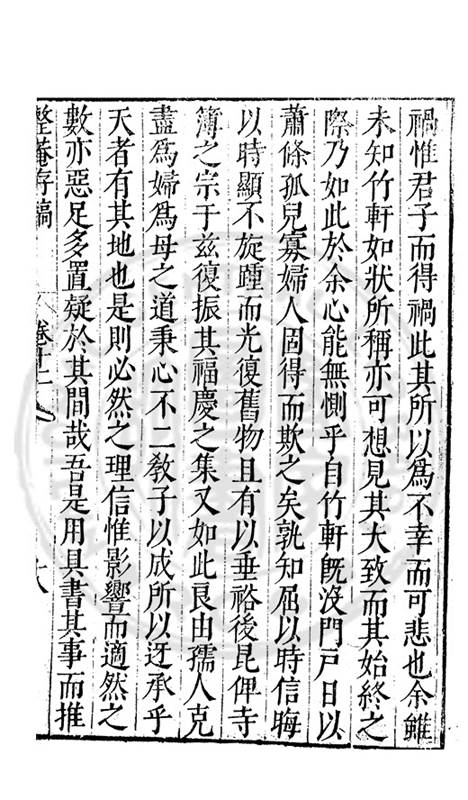 禍惟君子而得禍此其所以爲不幸而可悲也余雖
未知竹軒如狀所稱亦可想見其大致而其始終之
際乃如此於余心能無惻乎自竹軒旣沒門戸日以
蕭條孤兒寡婦人固得而欺之矣孰知屈以時信晦
以時顯不旋踵而光復舊物且有以垂裕後昆俾寺
簿之宗于兹復振其福慶之集又如此良由孺人克
盡爲婦爲母之道秉心不二敎子以成所以迓承乎
天者有其地也是則必然之理信惟影響而適然之
數亦惡足多置疑於其間哉吾是用具書其事而推
整菴存稿
卷十二